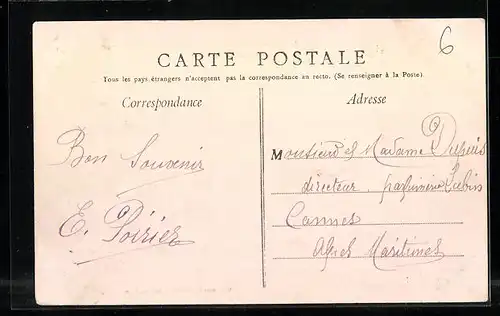 6
CARTE POSTALE
Tous les pays étrangers n'acceptent pas la correspondance au recto. (Se renseigner à la Poste)
Correspondance
Adresse
Bon Souvenir
E. Poirier
Monsieur et Madame Dupuis
directeur parfumerie Lubin
Cannes
Alpes Maritimes